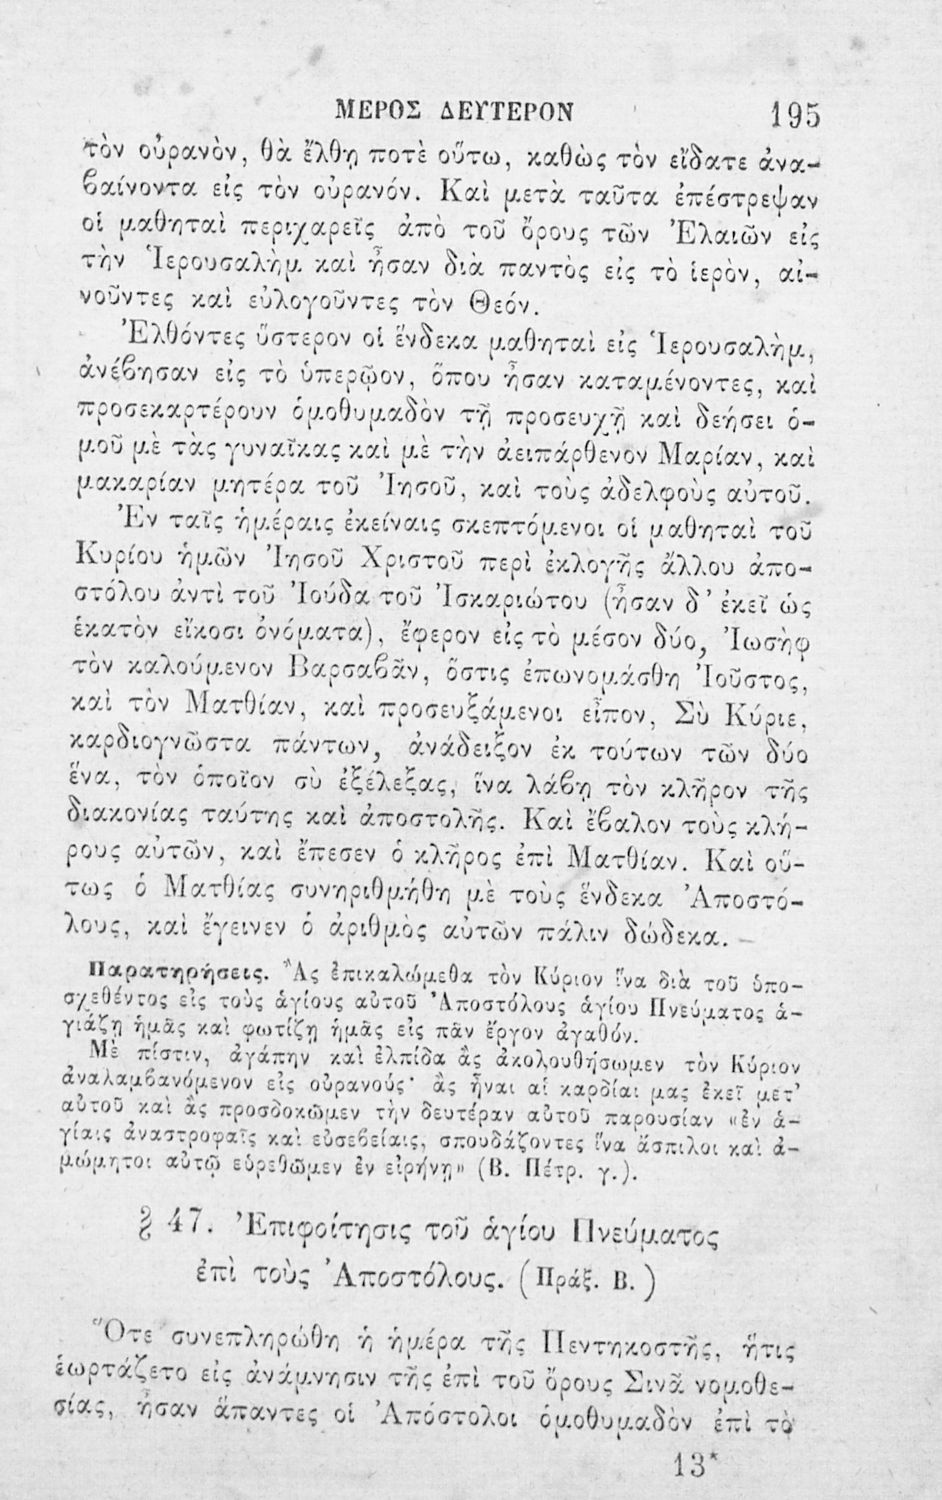 ΜΕΡΟΣ ΔΕΥΤΕΡΟΝ 195
τὸν οὐρανὸν, θὰ ἔλθῃ ποτὲ οὕτω, καθὼς τὸν εἴδατε ἀνα-
βαίνοντα εἰς τὸν οὐρανόν. Καὶ μετὰ ταῦτα ἐπέστρεψαν
οἱ μαθηταὶ περιχαρεῖς ἀπὸ τοῦ ὄρους τῶν Ἐλαιῶν εἰς
τὴν Ἱερουσαλὴμ καὶ ἦσαν διὰ παντὸς εἰς τὸ ἱερὸν, αἰ-
νοῦντες καὶ εὐλογοῦντες τὸν Θεόν.
Ἐλθόντες ὕστερον οἱ ἕνδεκα μαθηταὶ εἰς Ἱερουσαλὴμ,
ἀνέβησαν εἰς τὸ ὑπερῷον, ὅπου ἦσαν καταμένοντες, καὶ
προσεκαρτέρουν ὁμοθυμαδὸν τῇ προσευχῇ καὶ δεήσει ὁ-
μοῦ μὲ τὰς γυναῖκας καὶ μὲ τὴν ἀειπάρθενον Μαρίαν, καὶ
μακαρίαν μητέρα τοῦ Ἰησοῦ, καὶ τοὺς ἀδελφοὺς αὐτοῦ.
Ἐν ταῖς ἡμέραις ἐκείναις σκεπτόμενοι οἱ μαθηταὶ τοῦ
Κυρίου ἡμῶν Ἰησοῦ Χριστοῦ περὶ ἐκλογῆς ἄλλου ἀπο-
στόλου ἀντὶ τοῦ Ἰούδα τοῦ Ἰσκαριώτου (ἦσαν δ' ἐκεῖ ὡς
ἑκατὸν εἴκοσι ὀνόματα), ἔφερον εἰς τὸ μέσον δύο, Ἰωσὴφ
τὸν καλούμενον Βαρσαβᾶν, ὅστις ἐπωνομάσθη Ἰοῦστος,
καὶ τὸν Ματθίαν, καὶ προσευξάμενοι εἶπον, Σὺ Κύριε,
καρδιογνῶστα πάντων, ἀνάδειξον ἐκ τούτων τῶν δύο
ἕνα, τὸν ὁποῖον σὺ ἐξέλεξας, ἵνα λάβῃ τὸν κλῆρον τῆς
διακονίας ταύτης καὶ ἀποστολῆς. Καὶ ἔβαλον τοὺς κλή-
ρους αὐτῶν, καὶ ἔπεσεν ὁ κλῆρος ἐπὶ Ματθίαν. Καὶ οὕ-
τως ὁ Ματθίας συνηριθμήθη μὲ τοὺς ἕνδεκα Ἀποστό-
λους, καὶ ἔγεινεν ὁ ἀριθμὸς αὐτῶν πάλιν δώδεκα.
Παρατηρήσεις. Ἂς ἐπικαλώμεθα τὸν Κύριον ἵνα διὰ τοῦ ὑπο-
σχεθέντος εἰς τοὺς ἁγίους αὐτοῦ Ἀποστόλους ἁγίου Πνεύματος ἁ-
γιάζῃ ἡμᾶς καὶ φωτίζῃ ἡμᾶς εἰς πᾶν ἔργον ἀγαθόν.
Μὲ πίστιν, ἀγάπην καὶ ἐλπίδα ἂς ἀκολουθήσωμεν τὸν Κύριον
ἀναλαμβανόμενον εἰς οὐρανούς· ἂς ᾖναι αἱ καρδίαι μας ἐκεῖ μετ'
αὐτοῦ καὶ ἂς προσδοκῶμεν τὴν δευτέραν αὐτοῦ παρουσίαν «ἐν ἁ-
γίαις ἀναστροφαῖς καὶ εὐσεβείαις, σπουδάζοντες ἵνα ἄσπιλοι καὶ ἀ-
μώμητοι αὐτῷ εὑρεθῶμεν ἐν εἰρήνῃ» (Β. Πέτρ. γ.).
§ 47. Ἐπιφοίτησις τοῦ ἁγίου Πνεύματος
ἐπὶ τοὺς Ἀποστόλους. (Πράξ. Β.)
Ὅτε συνεπληρώθη ἡ ἡμέρα τῆς Πεντηκοστῆς, ἥτις
ἑωρτάζετο εἰς ἀνάμνησιν τῆς ἐπὶ τοῦ ὄρους Σινᾶ νομοθε-
σίας, ἦσαν ἅπαντες οἱ Ἀπόστολοι ὁμοθυμαδὸν ἐπὶ τὸ
13*